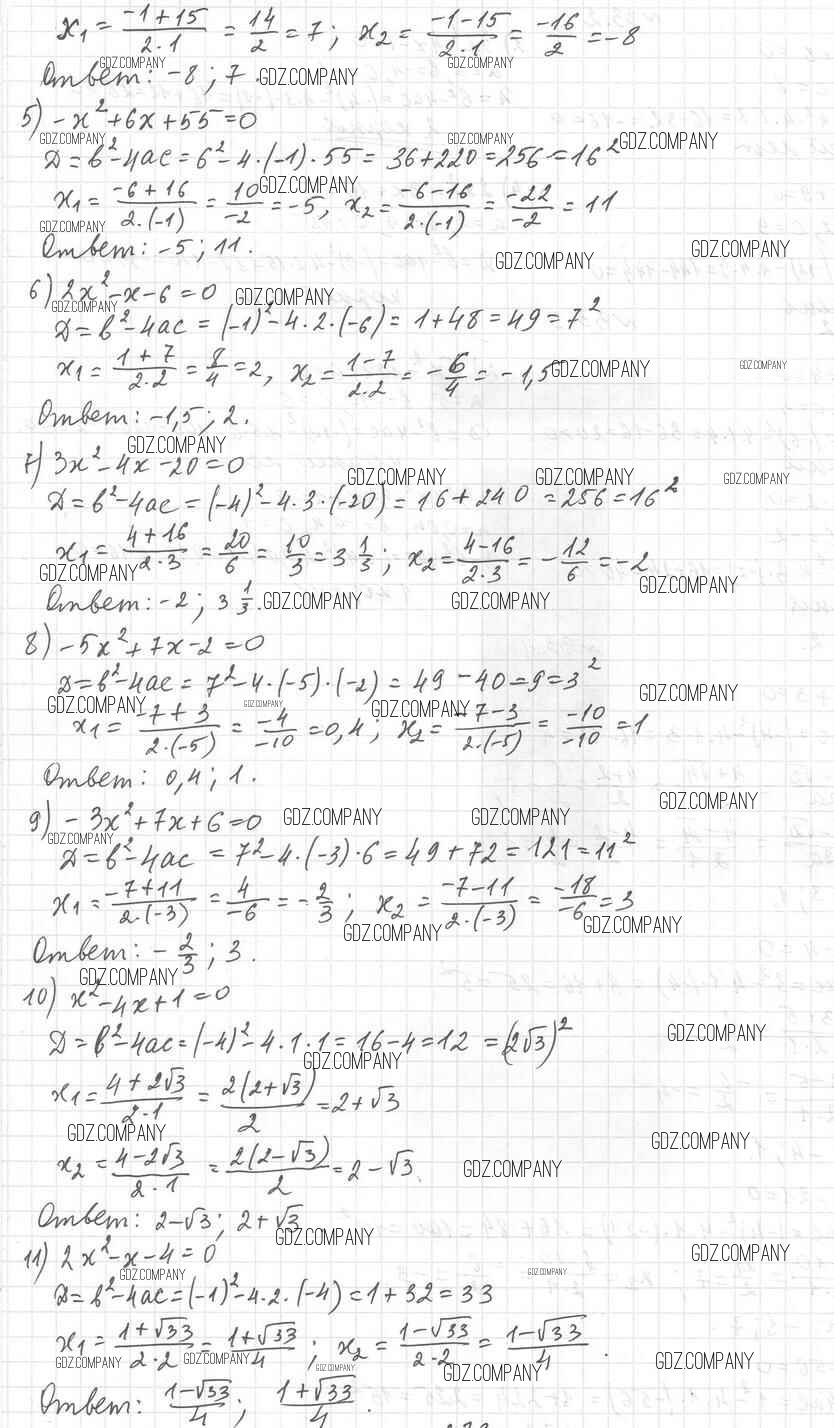 x₁ = (-1+15)/(2·1) = 14/2 = 7; x₂ = (-1-15)/(2·1) = -16/2 = -8
GDZ.COMPANY GDZ.COMPANY
Ответ: -8; 7. GDZ.COMPANY
5) -x²+6x+55=0
GDZ.COMPANY GDZ.COMPANY GDZ.COMPANY
D=b²-4ac=6²-4·(-1)·55=36+220=256=16²
GDZ.COMPANY
x₁ = (-6+16)/(2·(-1)) = 10/-2 = -5, x₂ = (-6-16)/(2·(-1)) = -22/-2 = 11
GDZ.COMPANY
Ответ: -5; 11. GDZ.COMPANY GDZ.COMPANY
6) 2x²-x-6=0 GDZ.COMPANY
GDZ.COMPANY
D=b²-4ac=(-1)²-4·2·(-6)=1+48=49=7²
x₁ = (1+7)/(2·2) = 8/4 = 2, x₂ = (1-7)/(2·2) = -6/4 = -1,5 GDZ.COMPANY GDZ.COMPANY
Ответ: -1,5; 2.
GDZ.COMPANY
7) 3x²-4x-20=0
GDZ.COMPANY GDZ.COMPANY GDZ.COMPANY
D=b²-4ac=(-4)²-4·3·(-20)=16+240=256=16²
x₁ = (4+16)/(2·3) = 20/6 = 10/3 = 3 1/3; x₂ = (4-16)/(2·3) = -12/6 = -2
GDZ.COMPANY GDZ.COMPANY
Ответ: -2; 3 1/3. GDZ.COMPANY GDZ.COMPANY
8) -5x²+7x-2=0
D=b²-4ac=7²-4·(-5)·(-2)=49-40=9=3²
GDZ.COMPANY GDZ.COMPANY GDZ.COMPANY GDZ.COMPANY
x₁ = (-7+3)/(2·(-5)) = -4/-10 = 0,4; x₂ = (-7-3)/(2·(-5)) = -10/-10 = 1
Ответ: 0,4; 1.
GDZ.COMPANY
9) -3x²+7x+6=0 GDZ.COMPANY GDZ.COMPANY
GDZ.COMPANY
D=b²-4ac=7²-4·(-3)·6=49+72=121=11²
x₁ = (-7+11)/(2·(-3)) = 4/-6 = -2/3; x₂ = (-7-11)/(2·(-3)) = -18/-6 = 3
GDZ.COMPANY GDZ.COMPANY
Ответ: -2/3; 3.
GDZ.COMPANY
10) x²-4x+1=0
D=b²-4ac=(-4)²-4·1·1=16-4=12=(2√3)² GDZ.COMPANY
GDZ.COMPANY
x₁ = (4+2√3)/(2·1) = 2(2+√3)/2 = 2+√3
GDZ.COMPANY GDZ.COMPANY
x₂ = (4-2√3)/(2·1) = 2(2-√3)/2 = 2-√3. GDZ.COMPANY
Ответ: 2-√3; 2+√3
GDZ.COMPANY
11) 2x²-x-4=0 GDZ.COMPANY
GDZ.COMPANY GDZ.COMPANY
D=b²-4ac=(-1)²-4·2·(-4)=1+32=33
x₁ = (1+√33)/(2·2) = (1+√33)/4; x₂ = (1-√33)/(2·2) = (1-√33)/4.
GDZ.COMPANY GDZ.COMPANY GDZ.COMPANY GDZ.COMPANY GDZ.COMPANY
Ответ: (1-√33)/4; (1+√33)/4.